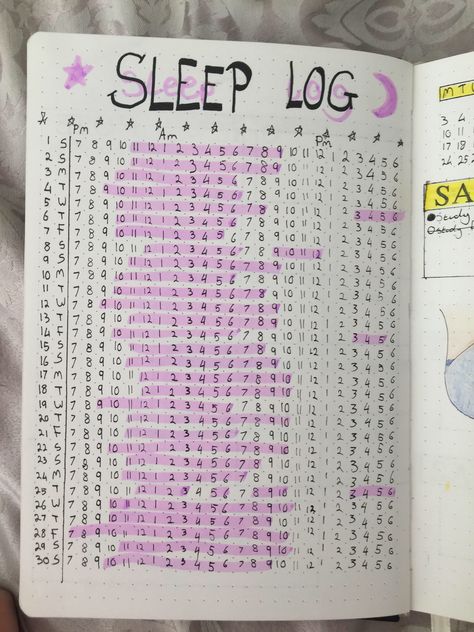 SLEEP LOG
Pm Am Pm
1 S 7 8 9 10 11 12 1 2 3 4 5 6 7 8 9 10 11 12 1 2 3 4 5 6
2 S 7 8 9 10 11 12 1 2 3 4 5 6 7 8 9 10 11 12 1 2 3 4 5 6
3 M 7 8 9 10 11 12 1 2 3 4 5 6 7 8 9 10 11 12 1 2 3 4 5 6
4 T 7 8 9 10 11 12 1 2 3 4 5 6 7 8 9 10 11 12 1 2 3 4 5 6
5 W 7 8 9 10 11 12 1 2 3 4 5 6 7 8 9 10 11 12 1 2 3 4 5 6
6 T 7 8 9 10 11 12 1 2 3 4 5 6 7 8 9 10 11 12 1 2 3 4 5 6
7 F 7 8 9 10 11 12 1 2 3 4 5 6 7 8 9 10 11 12 1 2 3 4 5 6
8 S 7 8 9 10 11 12 1 2 3 4 5 6 7 8 9 10 11 12 1 2 3 4 5 6
9 S 7 8 9 10 11 12 1 2 3 4 5 6 7 8 9 10 11 12 1 2 3 4 5 6
10 M 7 8 9 10 11 12 1 2 3 4 5 6 7 8 9 10 11 12 1 2 3 4 5 6
11 T 7 8 9 10 11 12 1 2 3 4 5 6 7 8 9 10 11 12 1 2 3 4 5 6
12 W 7 8 9 10 11 12 1 2 3 4 5 6 7 8 9 10 11 12 1 2 3 4 5 6
13 T 7 8 9 10 11 12 1 2 3 4 5 6 7 8 9 10 11 12 1 2 3 4 5 6
14 F 7 8 9 10 11 12 1 2 3 4 5 6 7 8 9 10 11 12 1 2 3 4 5 6
15 S 7 8 9 10 11 12 1 2 3 4 5 6 7 8 9 10 11 12 1 2 3 4 5 6
16 S 7 8 9 10 11 12 1 2 3 4 5 6 7 8 9 10 11 12 1 2 3 4 5 6
17 M 7 8 9 10 11 12 1 2 3 4 5 6 7 8 9 10 11 12 1 2 3 4 5 6
18 T 7 8 9 10 11 12 1 2 3 4 5 6 7 8 9 10 11 12 1 2 3 4 5 6
19 W 7 8 9 10 11 12 1 2 3 4 5 6 7 8 9 10 11 12 1 2 3 4 5 6
20 T 7 8 9 10 11 12 1 2 3 4 5 6 7 8 9 10 11 12 1 2 3 4 5 6
21 F 7 8 9 10 11 12 1 2 3 4 5 6 7 8 9 10 11 12 1 2 3 4 5 6
22 S 7 8 9 10 11 12 1 2 3 4 5 6 7 8 9 10 11 12 1 2 3 4 5 6
23 S 7 8 9 10 11 12 1 2 3 4 5 6 7 8 9 10 11 12 1 2 3 4 5 6
24 M 7 8 9 10 11 12 1 2 3 4 5 6 7 8 9 10 11 12 1 2 3 4 5 6
25 T 7 8 9 10 11 12 1 2 3 4 5 6 7 8 9 10 11 12 1 2 3 4 5 6
26 W 7 8 9 10 11 12 1 2 3 4 5 6 7 8 9 10 11 12 1 2 3 4 5 6
27 T 7 8 9 10 11 12 1 2 3 4 5 6 7 8 9 10 11 12 1 2 3 4 5 6
28 F 7 8 9 10 11 12 1 2 3 4 5 6 7 8 9 10 11 12 1 2 3 4 5 6
29 S 7 8 9 10 11 12 1 2 3 4 5 6 7 8 9 10 11 12 1 2 3 4 5 6
30 S 7 8 9 10 11 12 1 2 3 4 5 6 7 8 9 10 11 12 1 2 3 4 5 6
M T
3 4
10 11
17 18
24 25
SA
Study
study